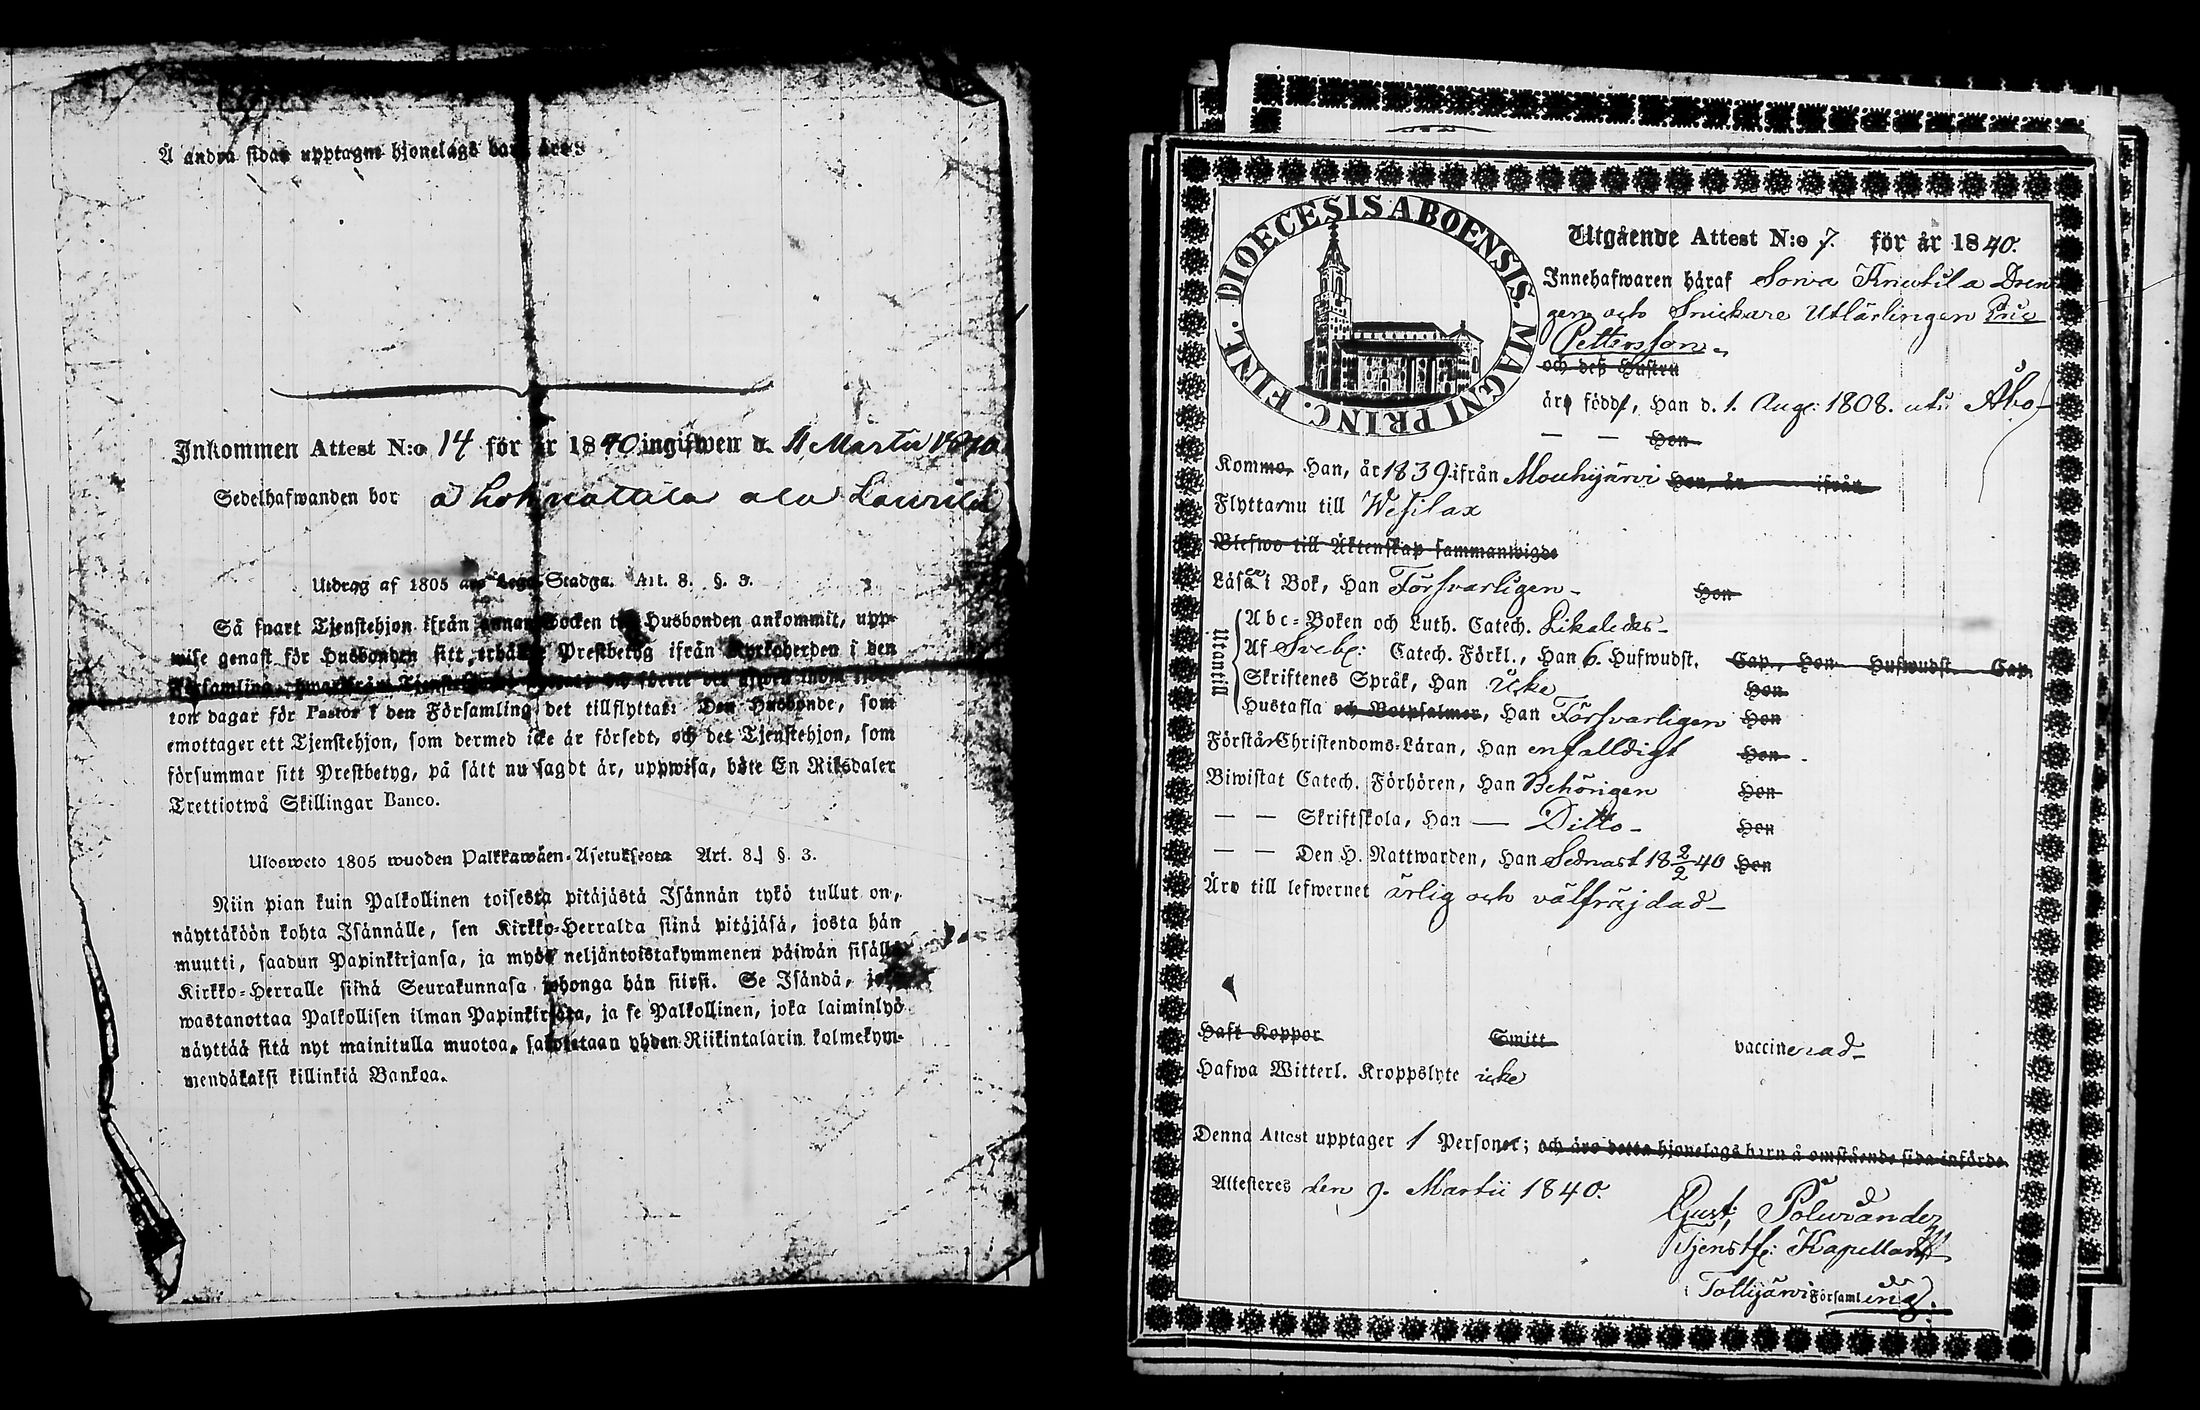 Å andra sidan upptagne hjonelags barn äro:
Inkommen Attest N:o 14 för år 1840 ingifwen d. 11 Martii 1840
Sedelhafwanden bor å
Utdrag af 1805 års Lego-Stadga. Art. 8. §. 3.
Så snart Tjenstehjon ifrån annan Socken til Husbonden ankommit, upp-
wise genast för Husbonden sitt erhållne Prestbetyg ifrån Kyrkoherden i den
Församling,
ton dagar för Pastor i den Församling det tillflyttat: Den Husbonde, som
emottager ett Tjenstehjon, som dermed icke är försedt, och det Tjenstehjon, som
försummar sitt Prestbetyg, på sätt nu sagdt är, uppwisa, böte En Riksdaler
Trettiotwå Skillingar Banco.
Ulosweto 1805 wuoden Palkkawäen-Asetuksesta Art. 8. §. 3.
Niin pian kuin Palkollinen toisesta pitäjästä Isännän tykö tullut on,
näyttäköön kohta Isännälle, sen Kirkko-Herralda siinä pitäjäsä, josta hän
muutti, saadun Papinkirjansa, ja myös neljäntoistakymmenen päiwän sisällä
Kirkko-Herralle siinä Seurakunnasa johonga hän siirsi. Se Isändä, joka
wastanottaa Palkollisen ilman Papinkirjata, ja se Palkollinen, joka laiminlyö
näyttää sitä nyt mainitulla muotoa, sakotetaan yhden Riikintalarin kolmekym-
mendäkaksi killinkiä Bankoa.
DIOECESIS ABOENSIS. MAGNI PRINC. FINL.
Utgående Attest N:o 7. för år 1840.
Innehafwaren häraf Sorva Knuutila Dren
gen och Snickare Utlärlingen Eric
Pettersson
och deß Hustru
äro födde, Han d. 1. Aug: 1808. uti Åbo
— — Hon
Komme, Han, år 1839 ifrån Mouhijärvi Hon, år ifrån
Flyttar nu till Wesilax
Blefwo till Äktenskap sammanwigde
Läser i Bok, Han Försvarligen Hon
Utantill
Abc-Boken och Luth. Catech. Likaledes
Af Sveb: Catech. Förkl., Han 6. Hufwudst. Cap., Hon Hufwudst. Cap.
Skriftenes Språk, Han Icke Hon
Hustafla och Botpsalmer, Han Försvarligen Hon
Förstår Christendoms-Läran, Han enfalldigt Hon
Biwistat Catech. Förhören, Han Behörigen Hon
— — Skriftskola, Han — Ditto Hon
— — Den H. Nattwarden, Han Sednast 18 2/2 40 Hon
Äro till lefwernet ärlig och välfräjdad
Haft Koppor Smitt vaccinerad
Hafwa Witterl. Kroppslyte icke
Denna Attest upptager 1 Personer; och äro detta hjonelags barn å omstående sida införde.
Attesteres den 9. Martii 1840.
Gust: Polviander
Tjenstf: Kapellan
i Tottijärvi Församling.